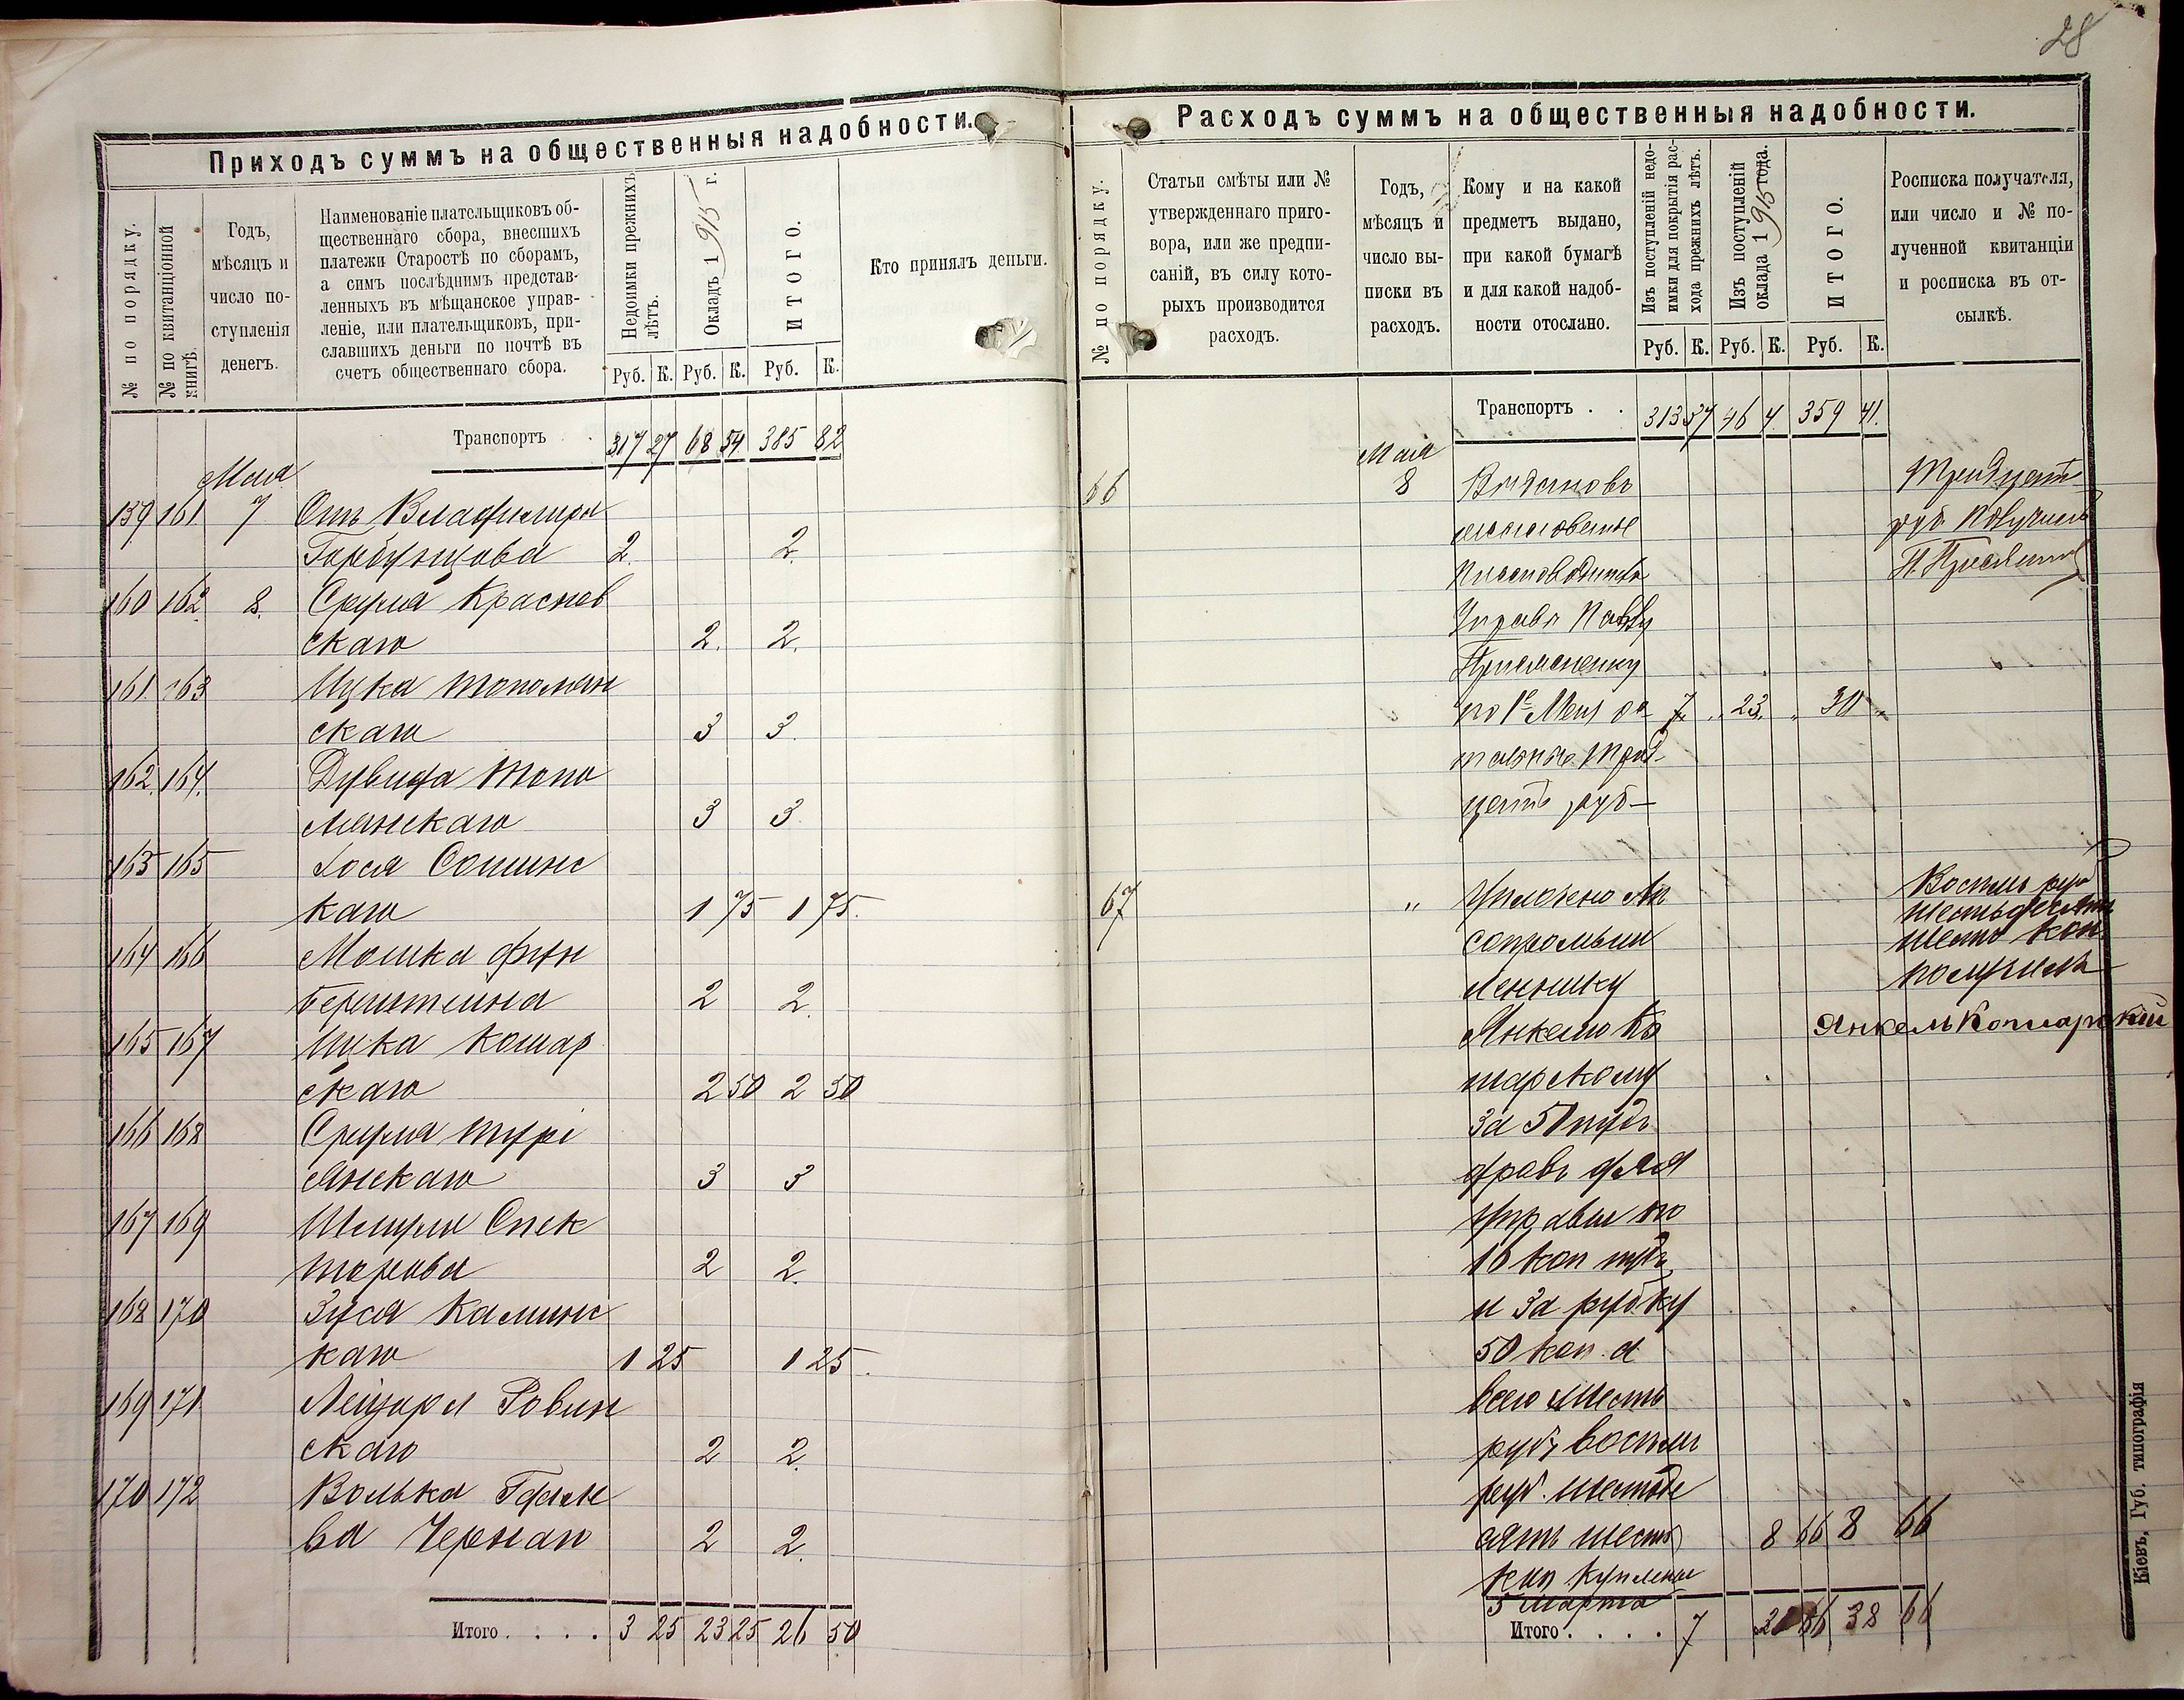 28
Приходъ суммъ на общественныя надобности.
№ по порядку.
№ по квитанціонной книгѣ.
Годъ,
мѣсяцъ и
число по-
ступленія
денегъ.
Наименованіе плательщиковъ об-
щественнаго сбора, внесшихъ
платежи Старостѣ по сборамъ,
а симъ послѣднимъ представ-
ленныхъ въ мѣщанское управ-
леніе, или плательщиковъ, при-
славшихъ деньги по почтѣ въ
счетъ общественнаго сбора.
Недоимки прежнихъ
лѣтъ.
Окладъ 1915 г.
ИТОГО.
Кто принялъ деньги.
Руб. К. Руб. К. Руб. К.
Транспортъ 317 27 68 54 385 82
Мая
159 161 7 Отъ Владимира
Горбунцова 2. 2.
160 162 8. Срула Краснов
скаго 2. 2.
161 163 Ицка Тополян
скаго 3 3.
162. 164. Дувида Топо
лянскаго 3 3.
163 165 Іося Сошинс
каго 1 75 1 75.
164 166 Мошка Фин
берштейна 2 2.
165 167 Ицка Кошар
скаго 2 50 2 50
166 168 Срула Турі
янскаго 3 3
167 169 Шмуля Спек
торова 2 2.
168 170 Зуся Калинс
каго 1 25 1 25.
169 171 Лейзара Ровин
скаго 2 2.
170 172 Волька
ва Черная 2 2.
Итого . . . . 3 25 23 25 26 50
Расходъ суммъ на общественныя надобности.
№ по порядку.
Статьи смѣты или №
утвержденнаго приго-
вора, или же предпи-
саній, въ силу кото-
рыхъ производится
расходъ.
Годъ,
мѣсяцъ и
число вы-
писки въ
расходъ.
Кому и на какой
предметъ выдано,
при какой бумагѣ
и для какой надоб-
ности отослано.
Изъ поступленій недо-
имки для покрытія рас-
хода прежнихъ лѣтъ.
Изъ поступленій
оклада 1915 года.
ИТОГО.
Росписка получателя,
или число и № по-
лученной квитанціи
и росписка въ от-
сылкѣ.
Руб. К. Руб. К. Руб. К.
Транспортъ . . 313 37 46 4 359 41.
Мая
66 8 Выдано въ
жалованье
Письмоводителю
Управы Павлу
по 1е Мая 7 23 30
тридцать
цать руб
Тридцать
руб получилъ
67 " Уплочено лѣ
сопромыш
леннику
Янкелю Ко
шарскому
За 51 пудъ
дровъ для
Управы по
16 коп пудъ
и за рубку
50 коп. а
всего шесть
руб, восемь
руб. шестьде
сятъ шесть 8 66 8 66
коп купленые
5 марта
Восемь руб
шестьдесятъ
шесть коп.
получилъ
Янкель Кошарскій
Итого . . . . 7 31 66 38 66
Кіевъ, Губ. типографія